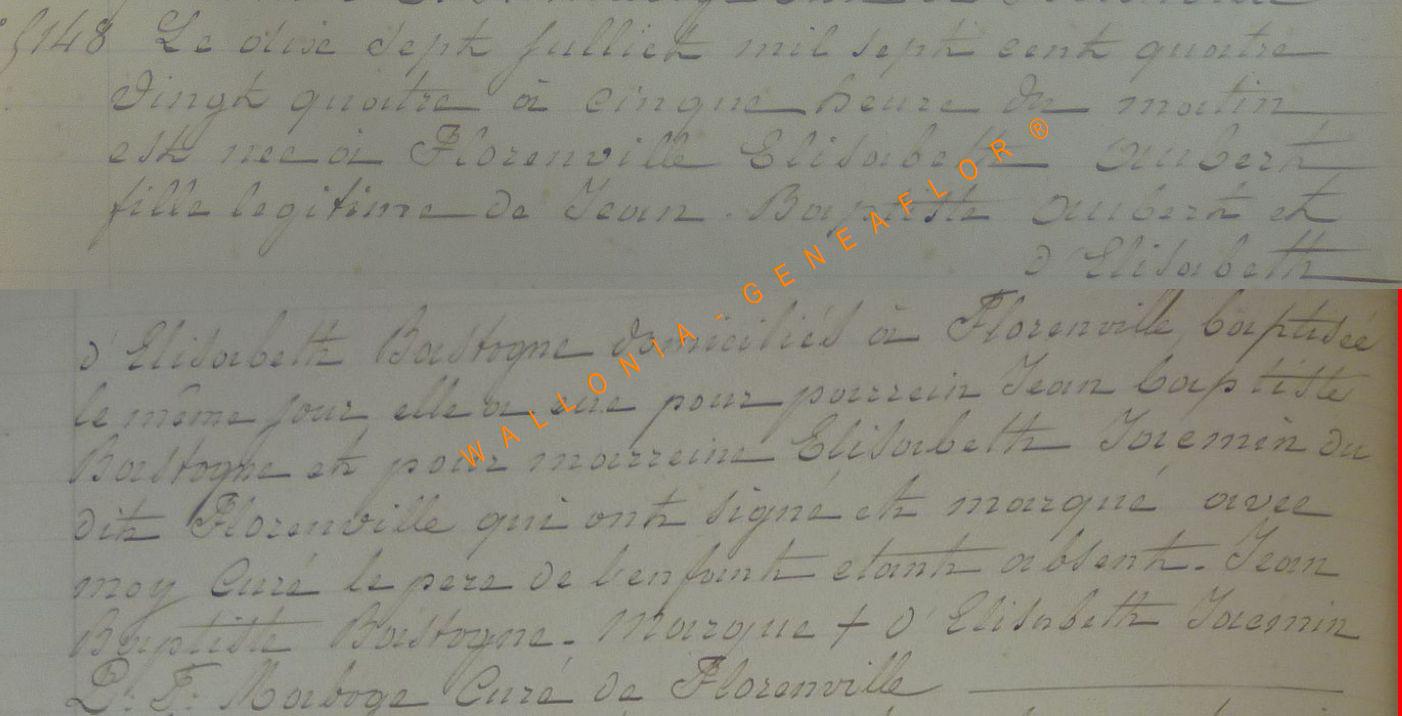 5148 Le dix sept Julliet mil sept cent quatre
vingt quatre à cinque heure du matin
est nee à Florenville Elisabeth Aubert
fille legitime de Jean Baptiste Aubert et
d'Elisabeth
d'Elisabeth Bastogne domiciliés à Florenville baptisée
le même jour elle a eue pour parrein Jean baptiste
Bastogne et pour marreine Elisabeth Jacmin du
dit Florenville qui ont signé et marqué avec
moy Curé le pere de l'enfant etant absent. Jean
Baptiste Bastogne. Marque + d'Elisabeth Jacmin
Curé de Florenville
WALLONIA - GENEAFLOR ®